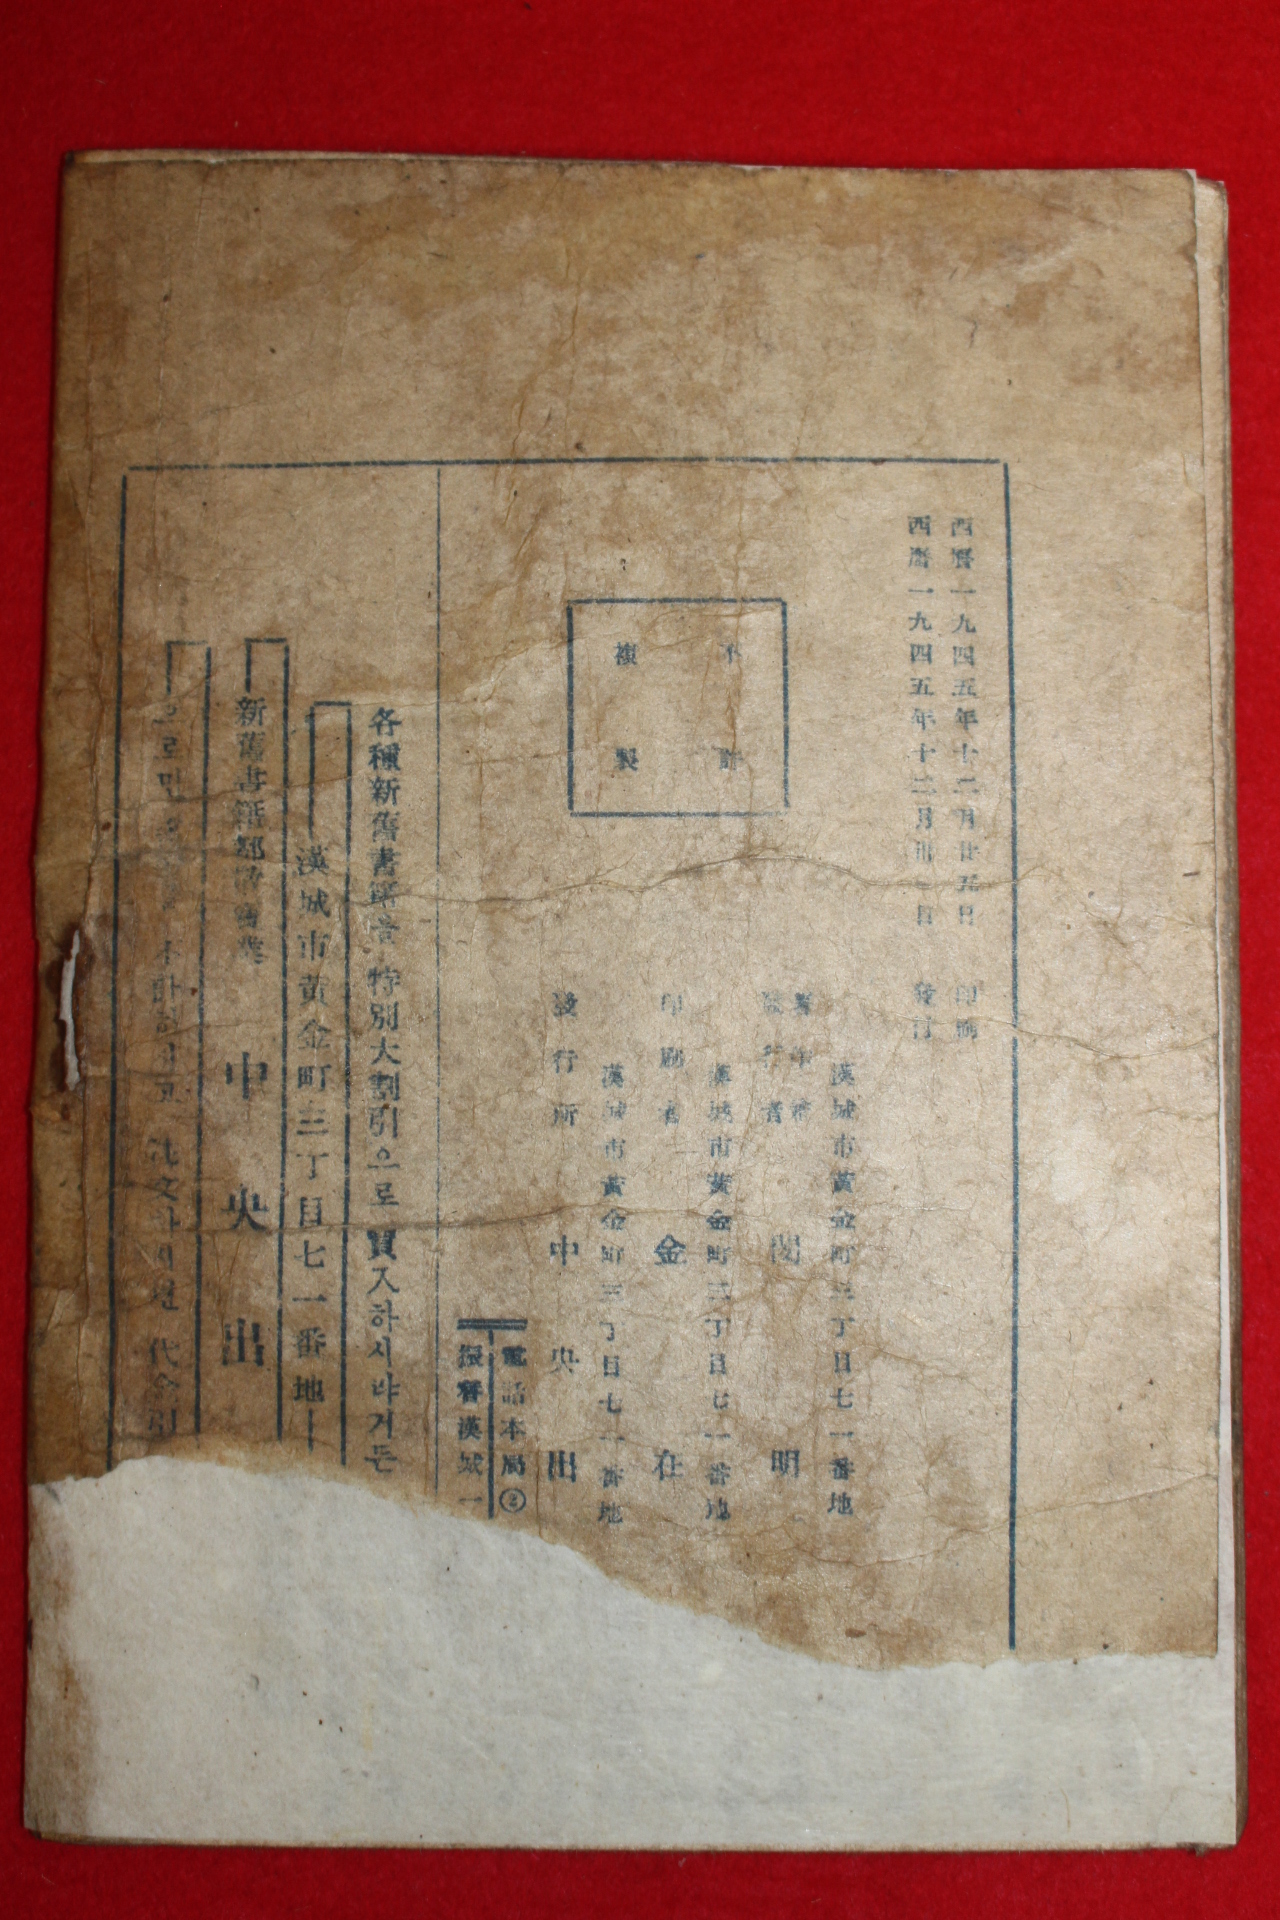 西曆一九四五年十二月廿五日 印刷
西曆一九四五年十二月卅一日 發行
不許
複製
漢城市黃金町三丁目七一番地
著作者
發行者 閔明
漢城市黃金町三丁目七一番地
印刷者 金在
漢城市黃金町三丁目七一番地
發行所 中央出
電話本局②
振替漢城一
各種新舊書籍을 特別大割引으로 買入하시랴거든
漢城市黃金町三丁目七一番地
新舊書籍都散賣業 中央出
으로만